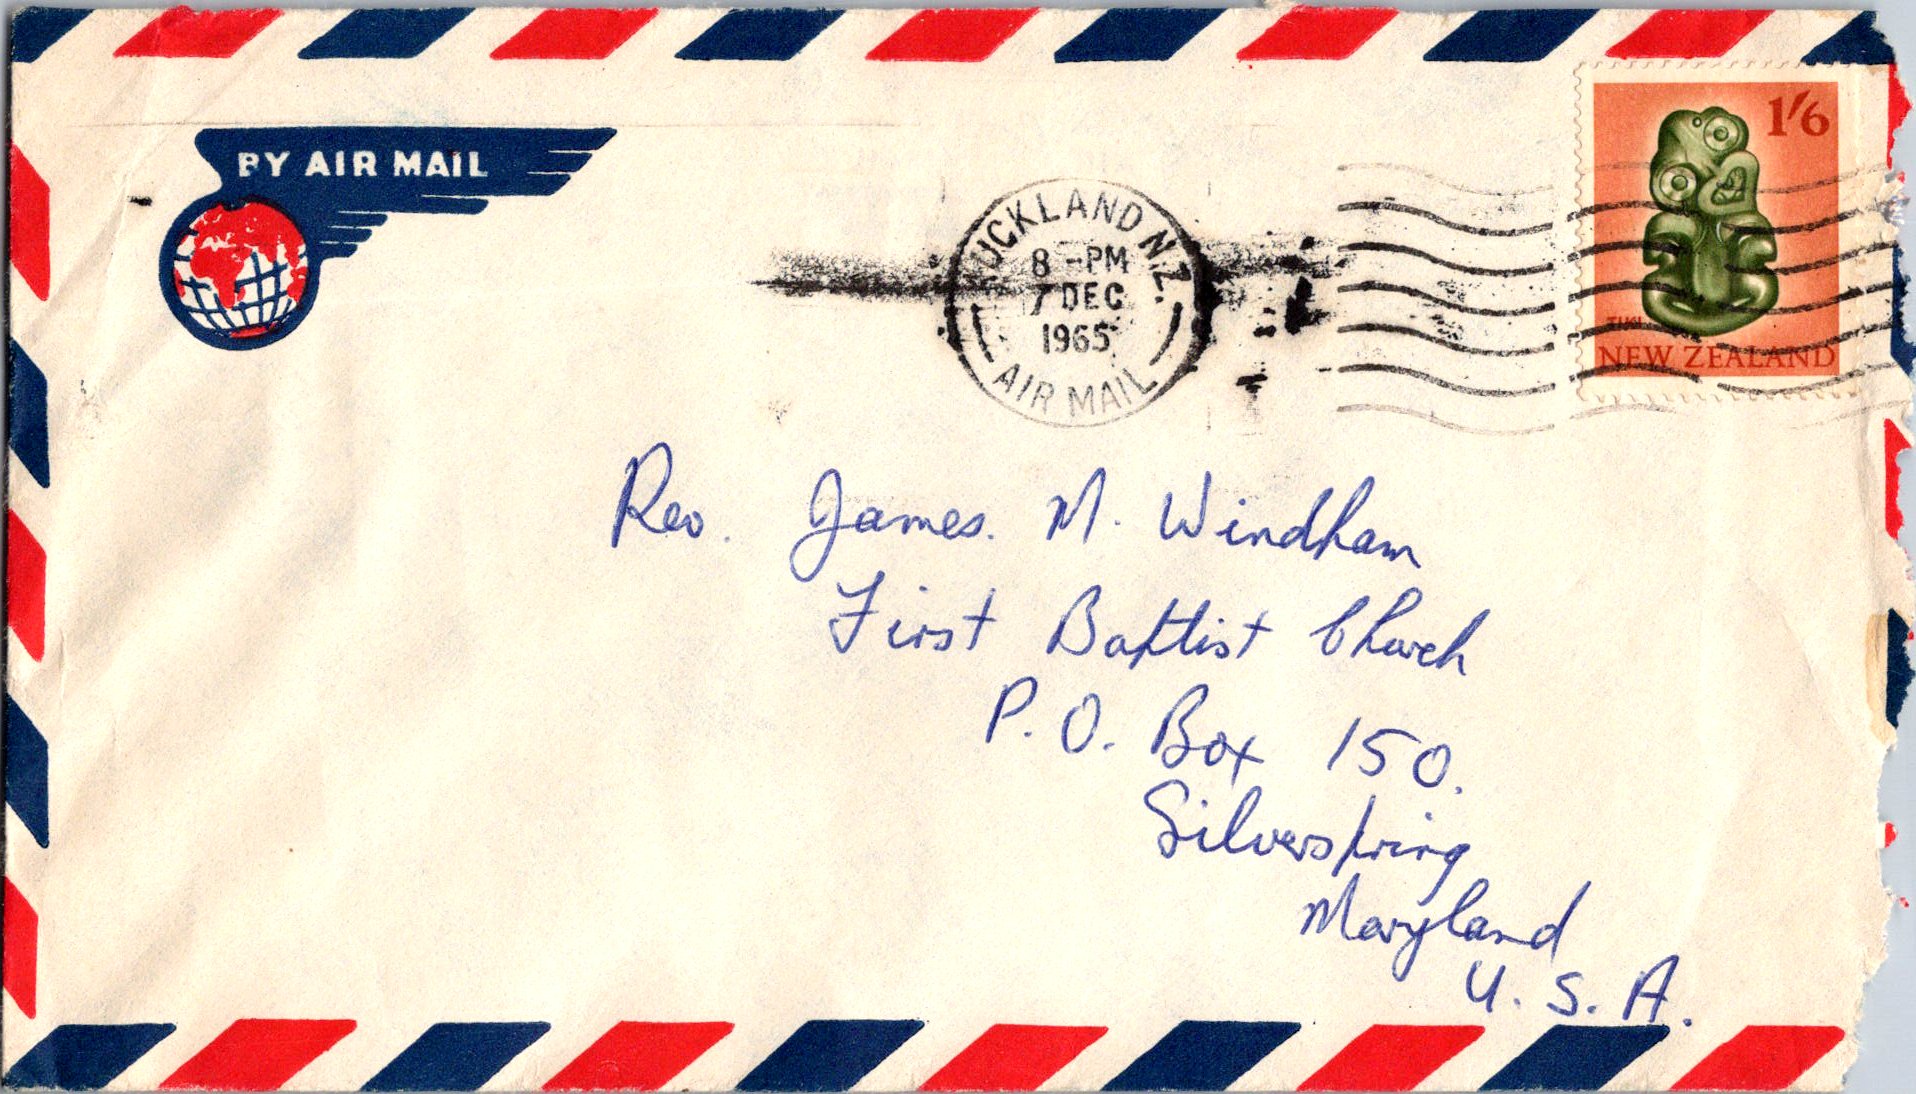 BY AIR MAIL
AUCKLAND N.Z.
8 -PM
7 DEC
1965
AIR MAIL
1/6
TIKI
NEW ZEALAND
Rev. James. M. Windham
First Baptist Church
P. O. Box 150.
Silverspring
Maryland
U. S. A.